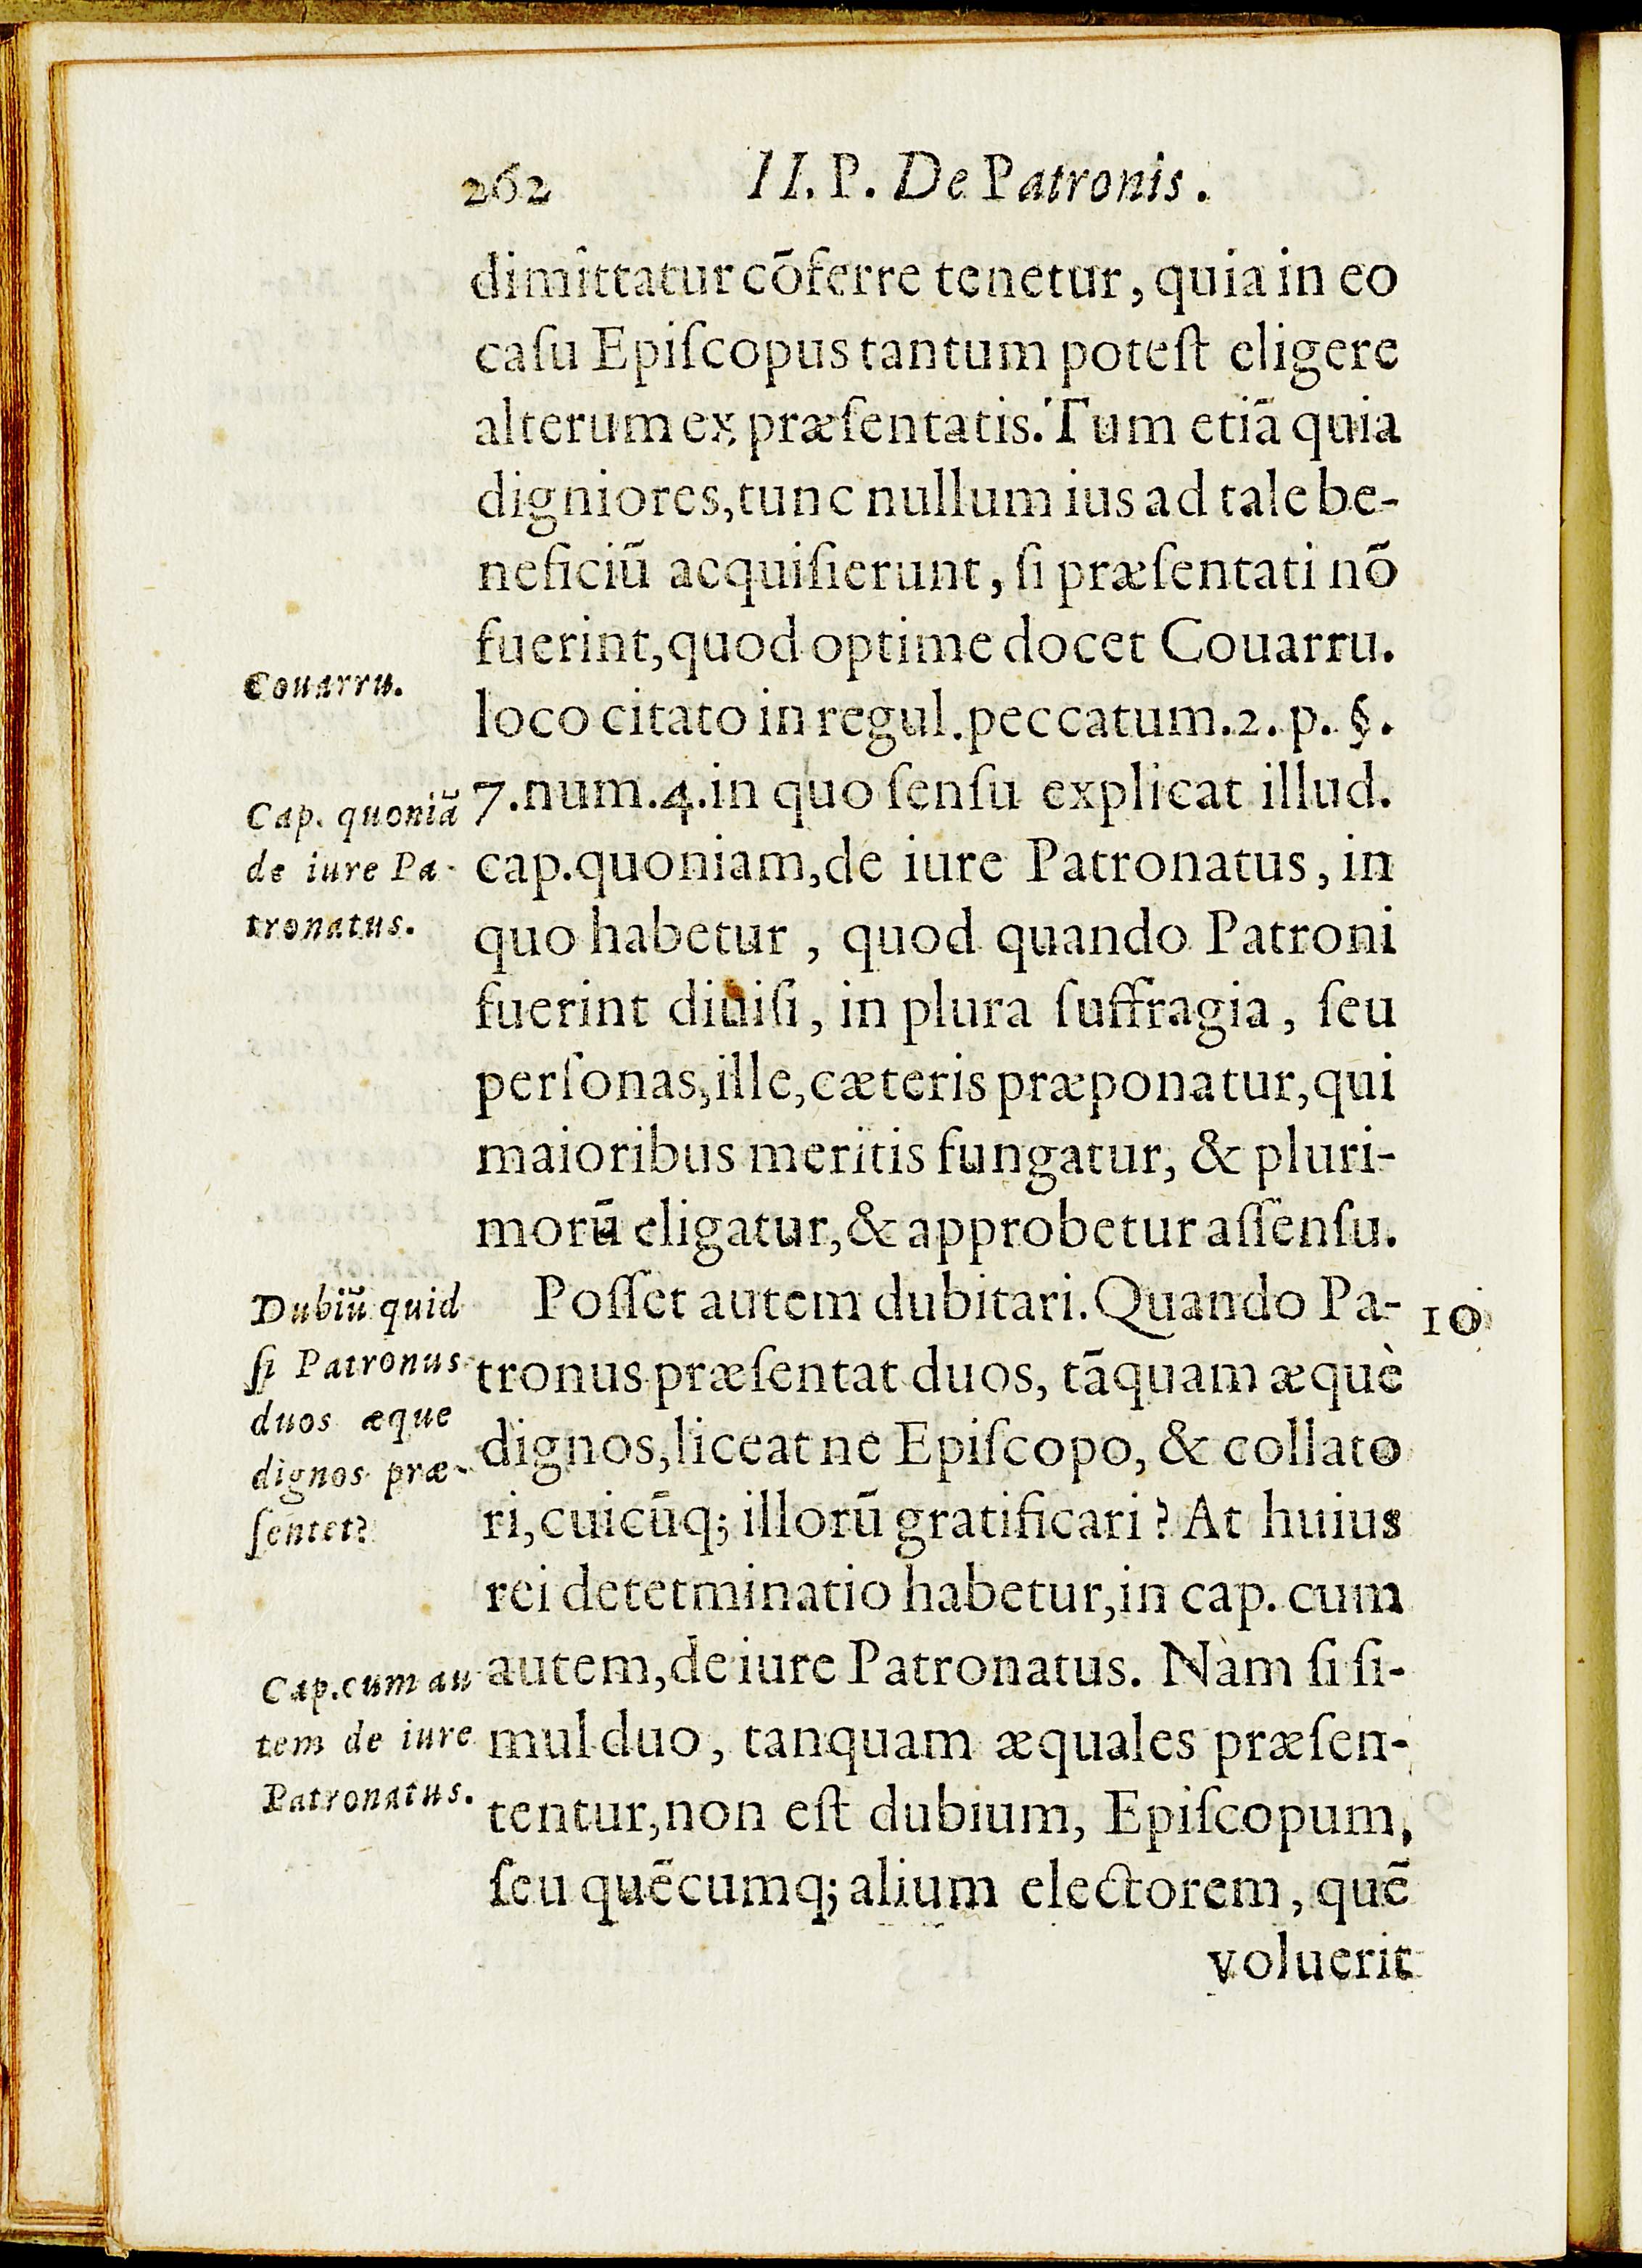 262 II. P. De Patronis.
dimittatur cōferre tenetur, quia in eo
caſu Epiſcopus tantum poteſt eligere
alterum ex præſentatis. Tum etiā quia
digniores, tunc nullum ius ad tale be-
neficiū acquiſierunt, ſi præſentati nō
fuerint, quod optime docet Couarru.
loco citato in regul. peccatum. 2. p. §.
7. num. 4. in quo ſenſu explicat illud.
cap. quoniam, de iure Patronatus, in
quo habetur, quod quando Patroni
fuerint diuiſi, in plura ſuffragia, ſeu
perſonas, ille, cæteris præponatur, qui
maioribus meritis fungatur, & pluri-
morū eligatur, & approbetur aſſenſu.
Poſſet autem dubitari. Quando Pa-
tronus præſentat duos, tāquam æquè
dignos, liceat ne Epiſcopo, & collato
ri, cuicūq; illorū gratificari? At huius
rei detetminatio habetur, in cap. cum
autem, de iure Patronatus. Nàm ſi ſi-
mul duo, tanquam æquales præſen-
tentur, non eſt dubium, Epiſcopum,
ſeu quēcumq; alium electorem, quē
voluerit
Couarru.
Cap. quoniā
de iure Pa-
tronatus.
Dubiū quid
ſi Patronus
duos æque
dignos præ-
ſentet?
Cap. cum au
tem de iure
Patronatus.
10